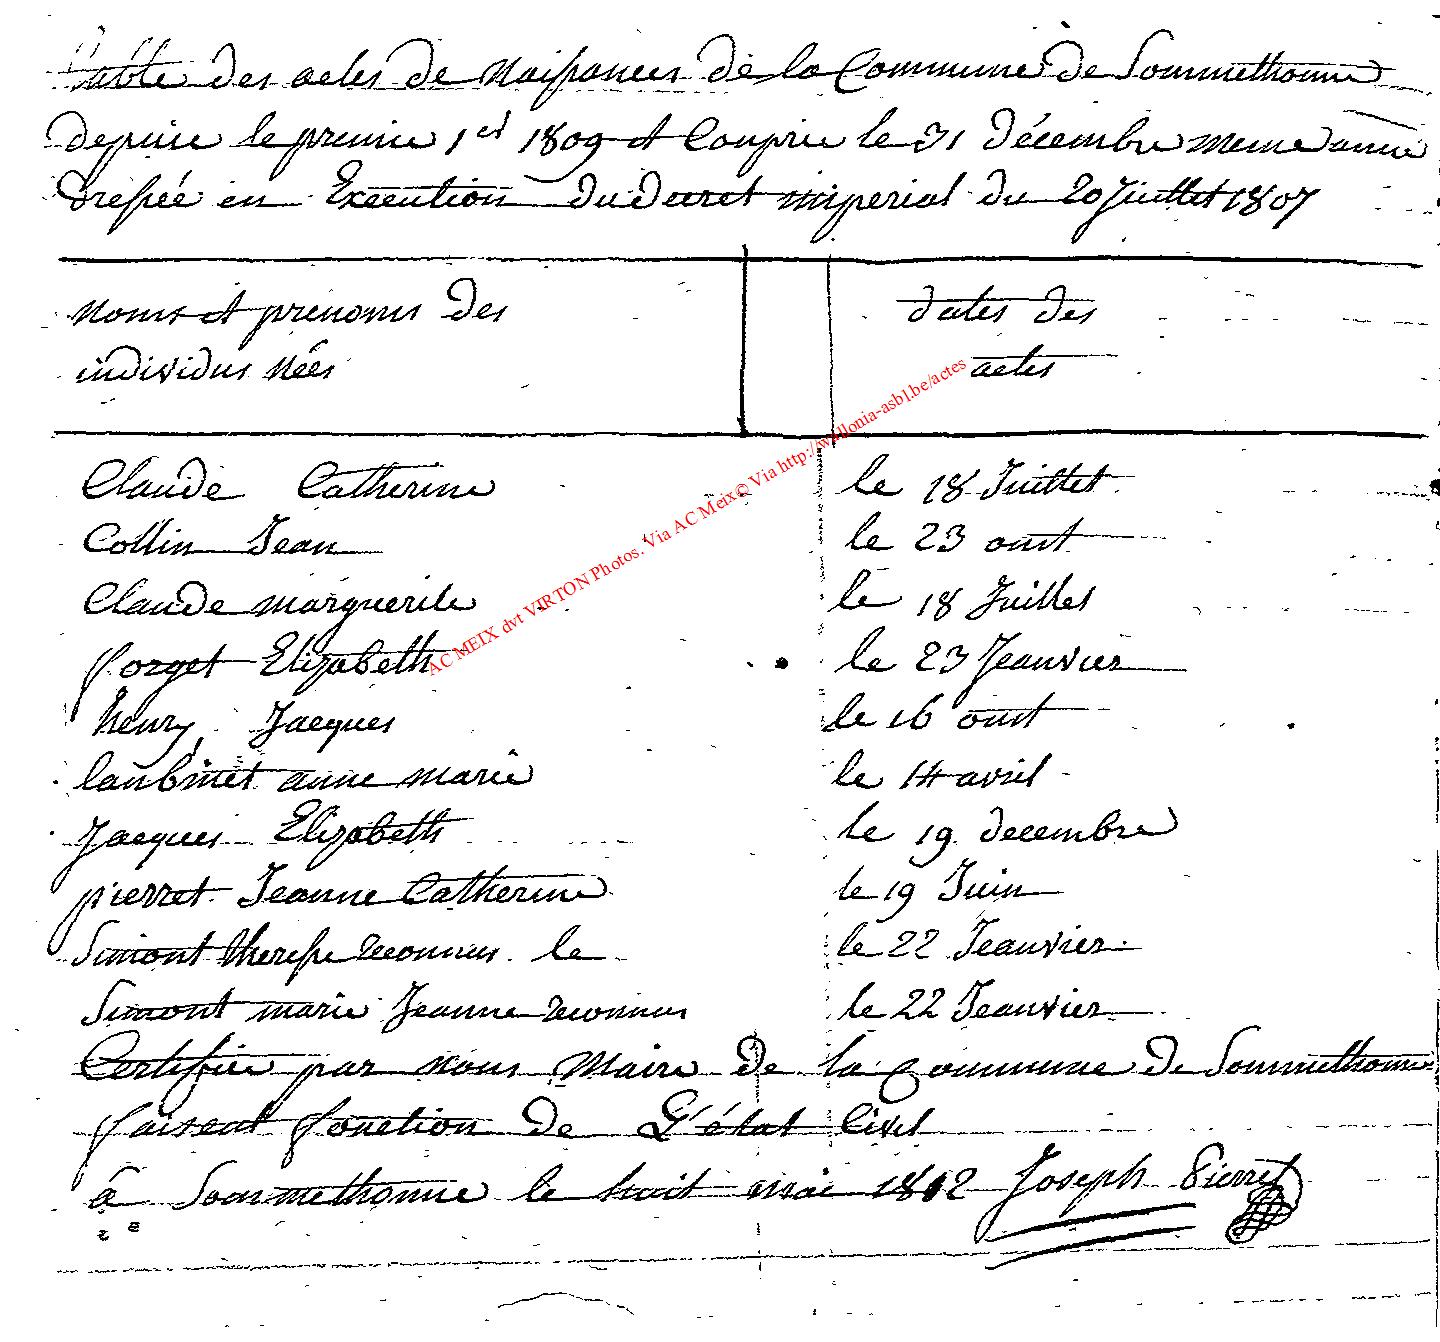 Table des actes de Naissances de la Commune de Sommethonne
depuis le premie 1er 1809 et Compris le 31 décembre meme anné
dressée en Exécution du decret imperial du 20 Juillet 1807
Noms et prenoms des
individus Nées
dates des
actes
Claude Catherine le 18 Juillet
Collin Jean le 23 out
Claude marguerite le 18 Juillet
forget Elizabeth le 23 Jeanvier
henry Jacques le 16 out
laubinet anne marie le 14 avril
Jacques Elizabeth le 19 decembre
pierret Jeanne Catherine le 19 Juin
Simont therese reconnus le le 22 Jeanvier
Simont marie Jeanne reconnus le 22 Jeanvier
Certifiée par nous Maire de la Commune de Sommethonne
faisent fonction de L'état Civil
à Sommethonne le huit mai 1812 Joseph Pierret
AC MEIX dvt VIRTON Photos. Via AC Meix© Via http://wallonia-asbl.be/actes